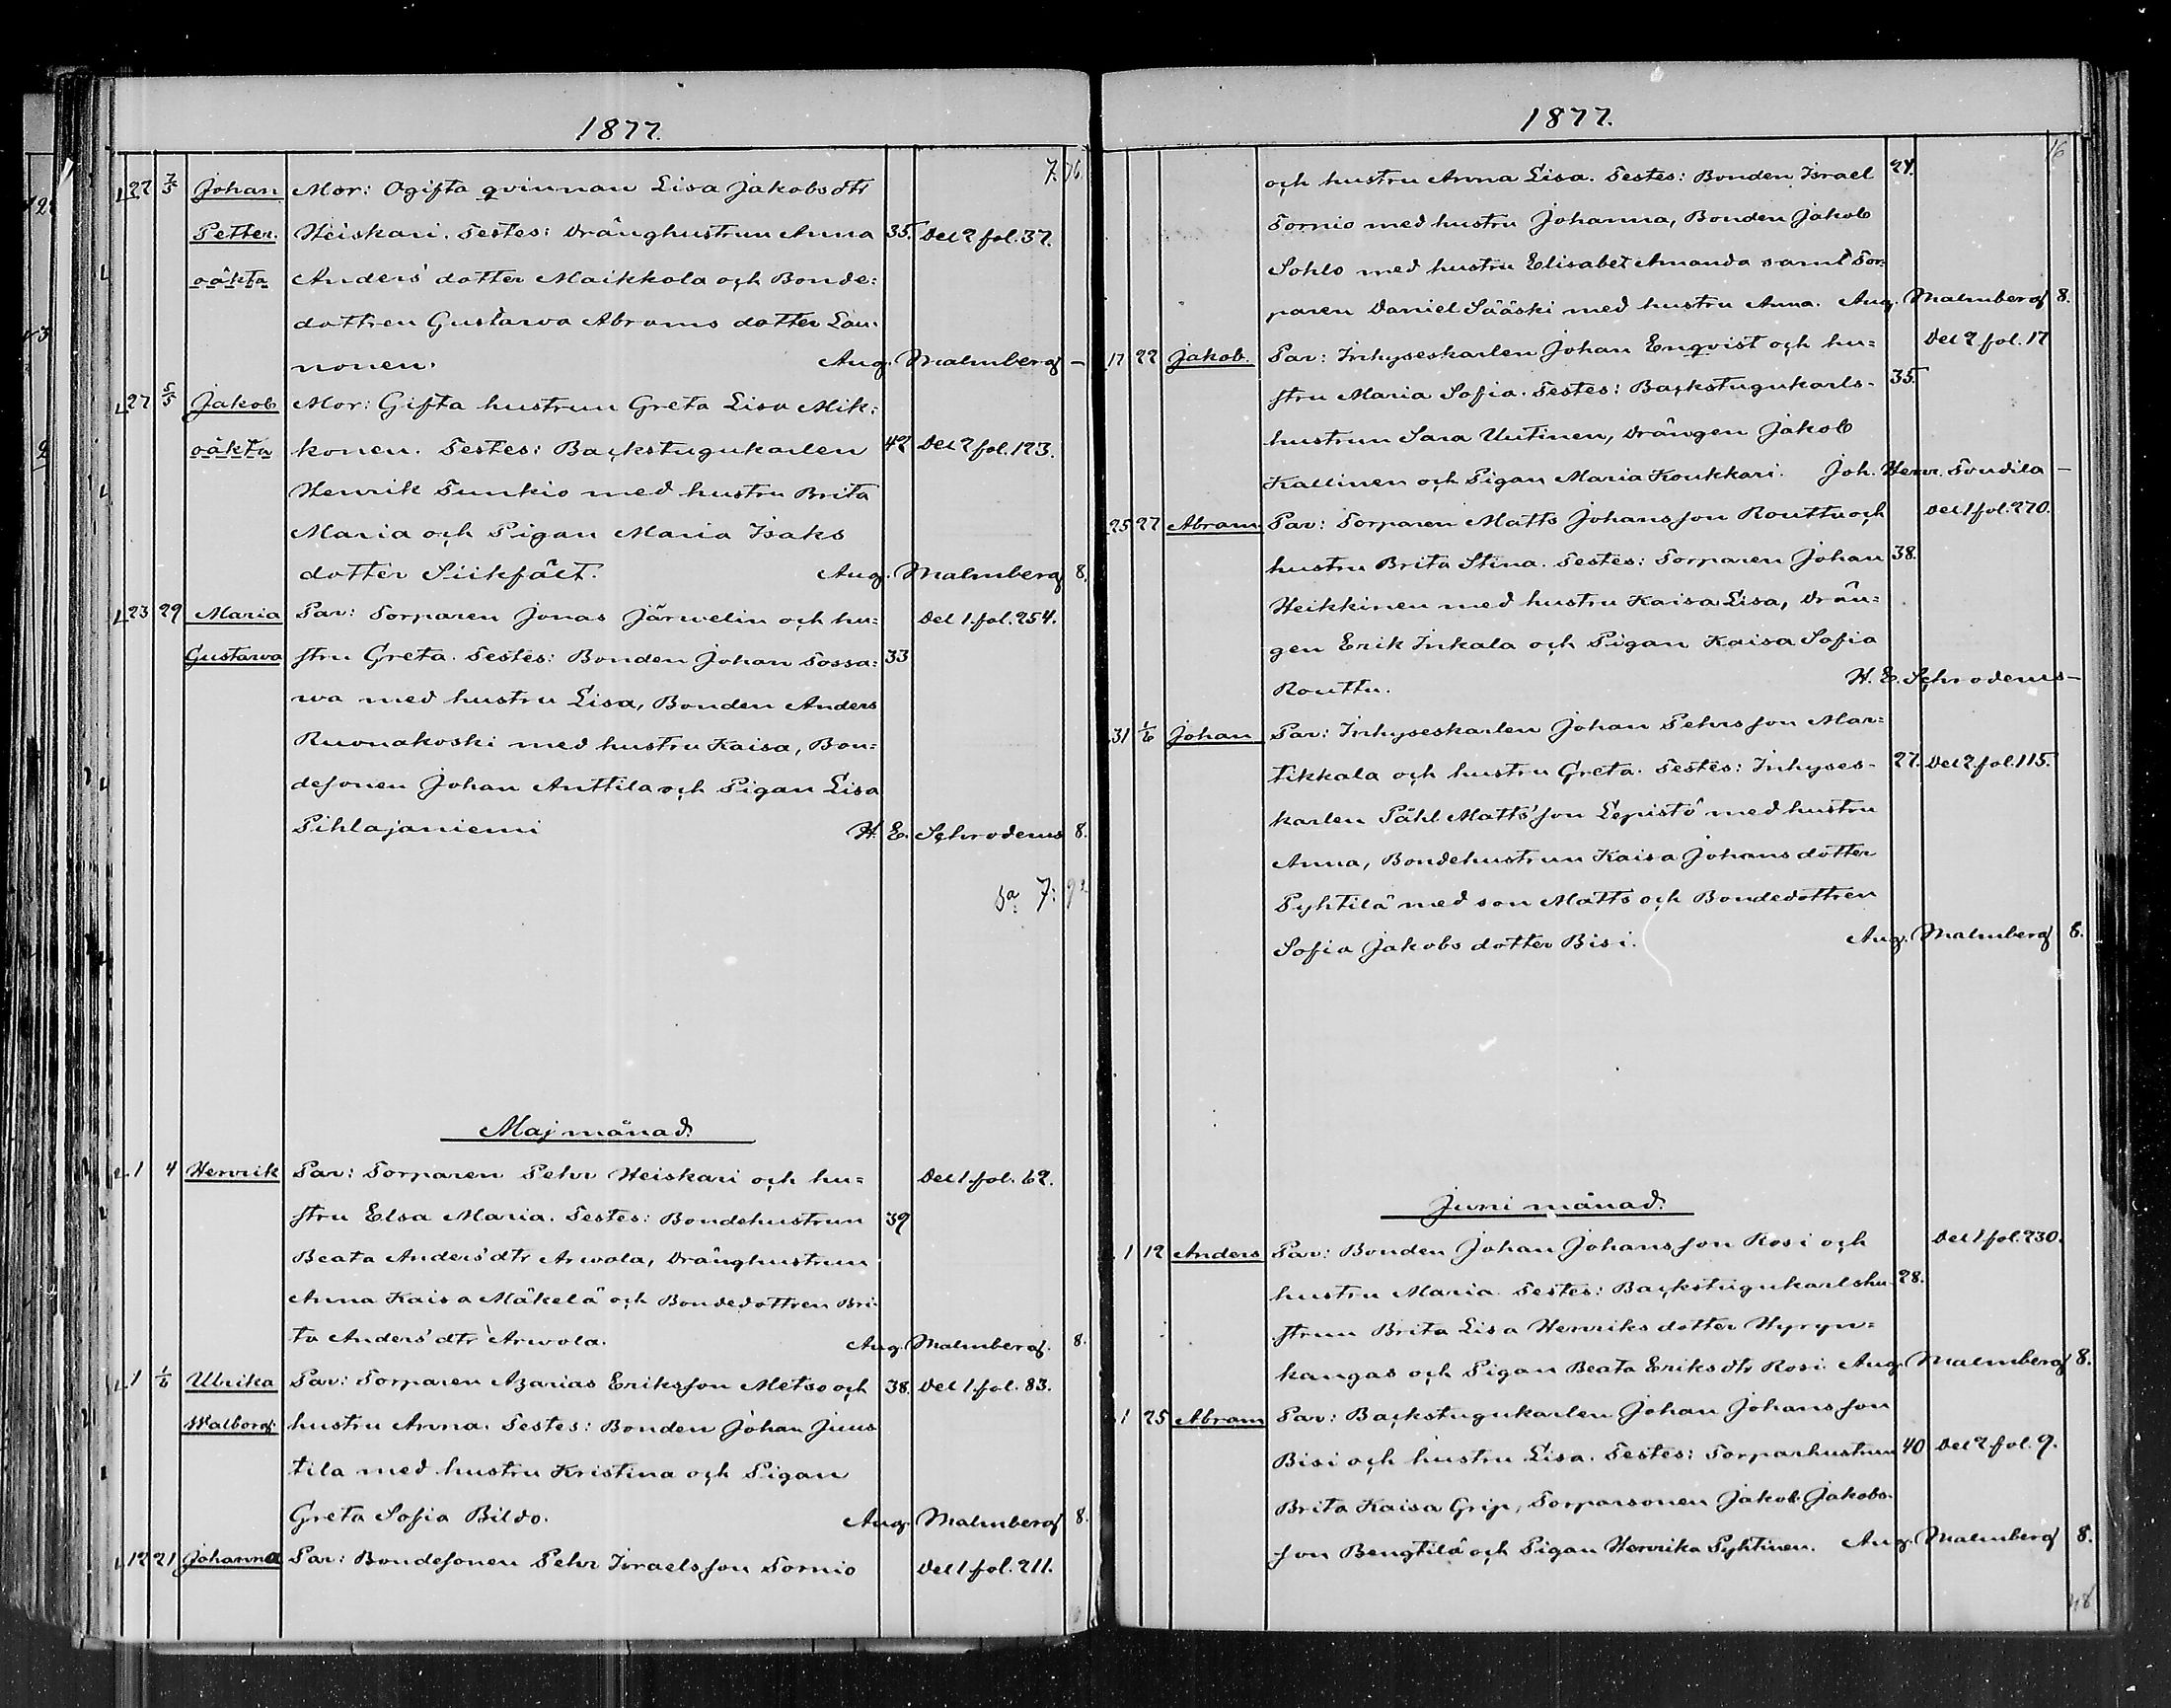 1877.
7. 76
27 7/5 Johan Mor: Ogifta qvinnan Lisa Jakobsdtr
Petter. Heiskari. Testes: Dränghustrun Anna 35. Del 2 fol. 37.
oäkta Anders'dotter Maikkola och Bonde=
dottren Gustawa Abrams dotter Lau=
nonen. Aug. Malmberg –
27 5/5 Jakob Mor: Gifta hustrun Greta Lisa Mik=
oäkta konen. Testes: Backstugukarlen 42 Del 2 fol. 123.
Henrik Tunkio med hustru Brita
Maria och Pigan Maria Isaks
dotter Siikfält. Aug. Malmberg 8.
23 29 Maria Par: Torparen Jonas Järwelin och hu= Del 1. fol. 254.
Gustawa stru Greta. Testes: Bonden Johan Tossa= 33
wa med hustru Lisa, Bonden Anders
Ruonakoski med hustru Kaisa, Bon=
desonen Johan Anttila och Pigan Lisa
Pihlajaniemi H. E. Schroderus 8.
Sa 7: 92
Maj månad.
1 4 Henrik Par: Torparen Pehr Heiskari och hu= Del 1. fol. 62.
stru Elsa Maria. Testes: Bondehustrun 39
Beata Anders'dtr Arwola, Dränghustrun
Anna Kaisa Mäkelä och Bondedottren Bri=
ta Anders'dtr Arwola. Aug. Malmberg. 8.
1 1/6 Ulrika Par: Torparen Azarias Eriksson Metso och 38. Del 1. fol. 83.
Walborg. hustru Anna. Testes: Bonden Johan Juus
tila med hustru Kristina och Pigan
Greta Sofia Bildo. Aug. Malmberg 8.
12 21 Johanna Par: Bondesonen Pehr Israelsson Tornio Del 1. fol. 211.
1877.
16
och hustru Anna Lisa. Testes: Bonden Israel 24.
Tornio med hustru Johanna, Bonden Jakob
Sohlo med hustru Elisabet Amanda samt Tor=
paren Daniel Sääski med hustru Anna. Aug. Malmberg 8.
17 22 Jakob. Par: Inhyseskarlen Johan Enqvist och hu= Del 2 fol. 17
stru Maria Sofia. Testes: Backstugukarls- 35.
hustrun Sara Uutinen, Drängen Jakob
Kallinen och Pigan Maria Koukkari. Joh. Henr. Snudila –
25 27 Abram Par: Torparen Matts Johansson Routtu och Del 1 fol. 270.
hustru Brita Stina. Testes: Torparen Johan 38.
Heikkinen med hustru Kaisa Lisa, Drän=
gen Erik Inkala och Pigan Kaisa Sofia
Routtu. H. E. Schroderus –
31 1/6 Johan Par: Inhyseskarlen Johan Pehrsson Mar=
tikkala och hustru Greta. Testes: Inhyses- 27. Del 2 fol. 115.
karlen Påhl Matts'son Lepistö med hustru
Anna, Bondehustrun Kaisa Johans dotter
Pyhtilä med son Matts och Bondedottren
Sofia Jakobs dotter Bisi. Aug. Malmberg 8.
Juni månad.
1 12 Anders Par: Bonden Johan Johansson Rosi och Del 1 fol. 230.
hustru Maria. Testes: Backstugukarlshu 28.
strun Brita Lisa Henriks dotter Hyryn=
kangas och Pigan Beata Eriksdtr Rosi. Aug. Malmberg 8.
1 25 Abram Par: Backstugukarlen Johan Johansson
Bisi och hustru Lisa. Testes: Torparhustrun 40 Del 2 fol. 9.
Brita Kaisa Grip, Torparsonen Jakob Jakobs-
son Bengtilä och Pigan Henrika Pyhtinen. Aug. Malmberg 8.
48